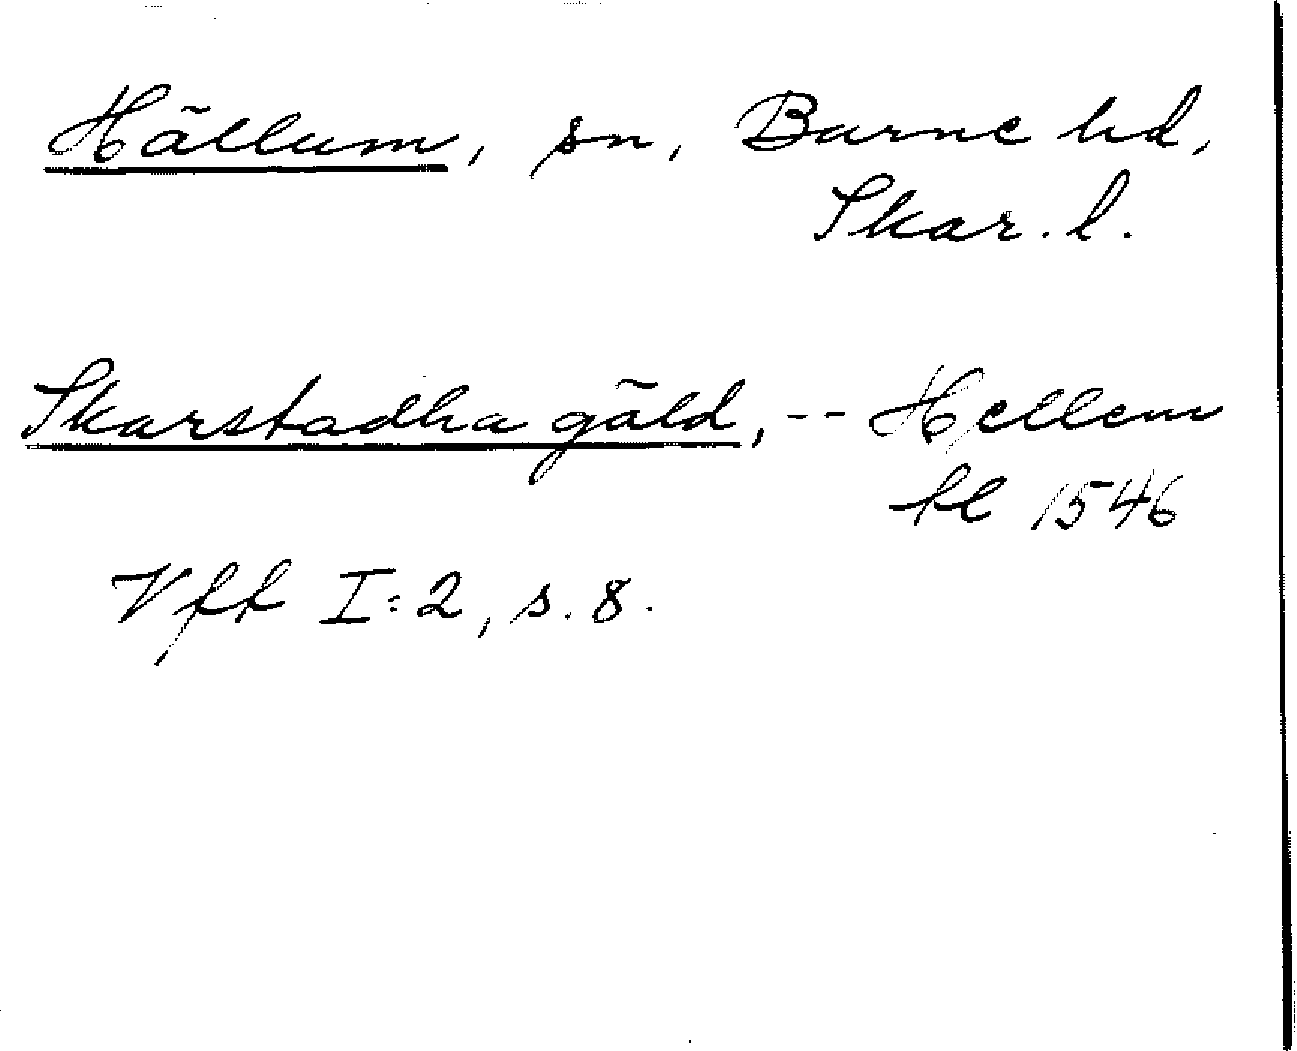 Hällum, sn, Barne hd,
Skar. l.
Skarstadha gäld, -- Hellem
kl 1546
Vff I:2, s. 8.